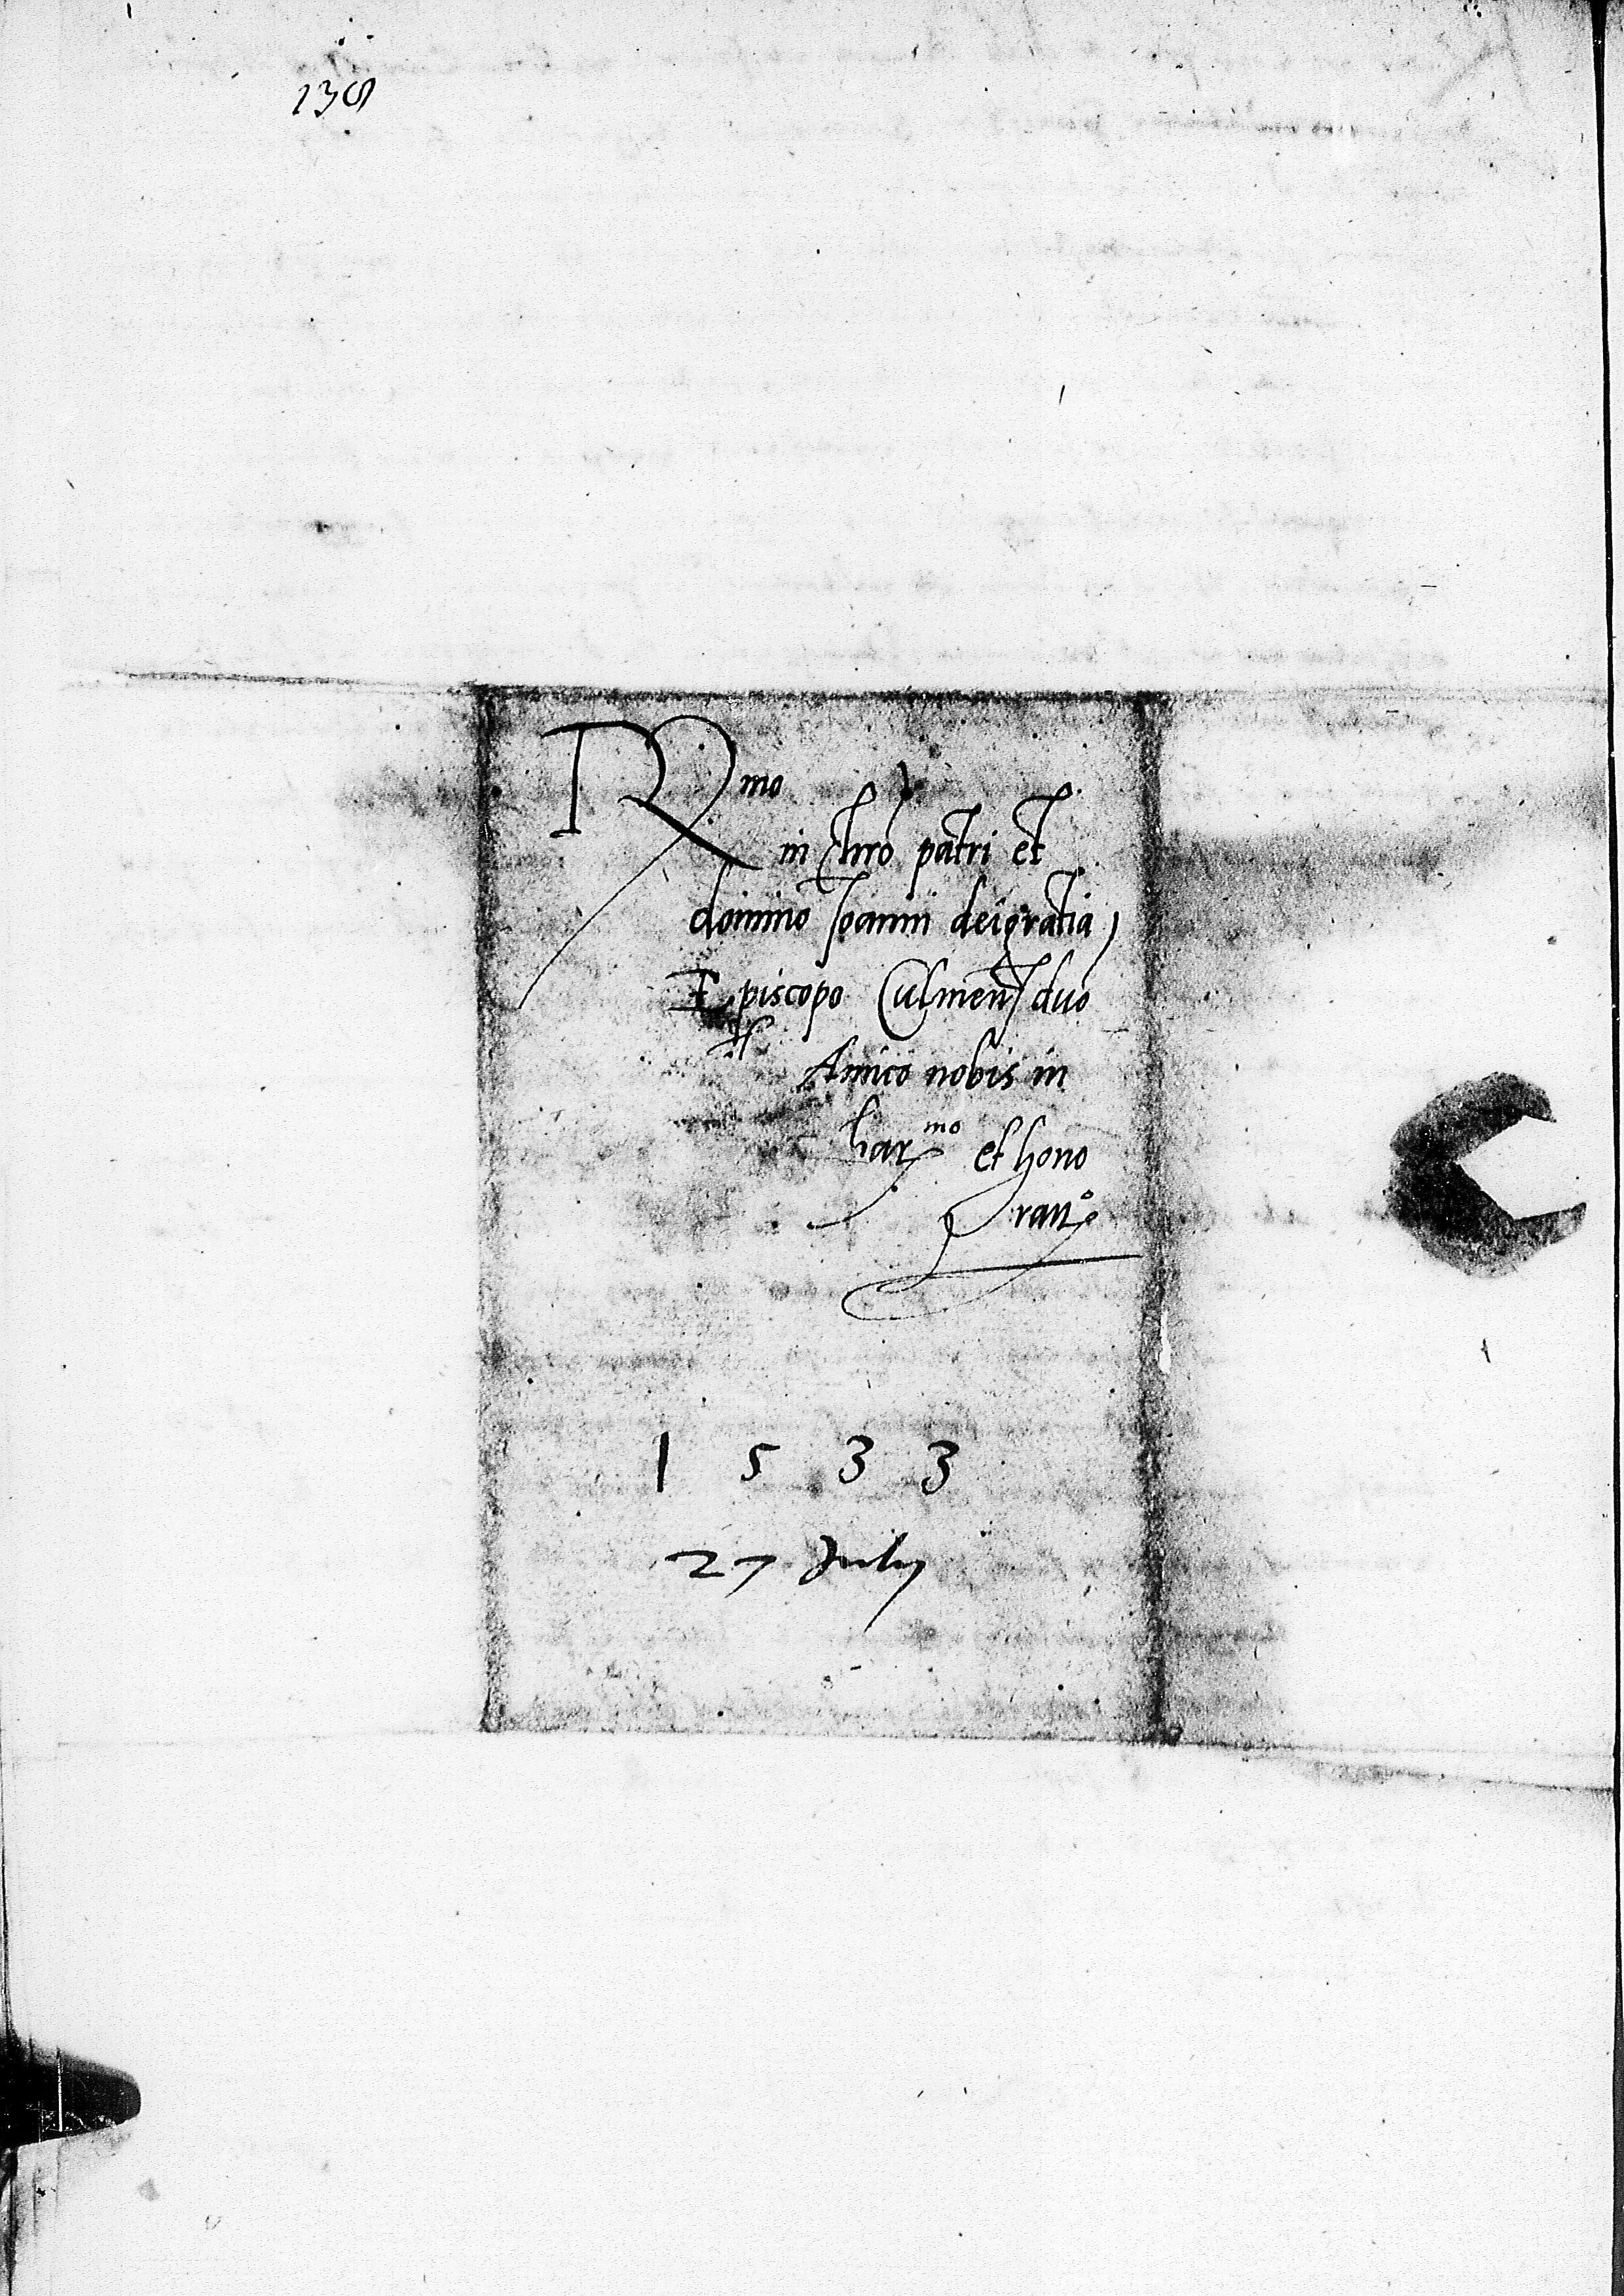 138
R mo
in Chro patri et
domino Joanni dei gratia
Episcopo Culmen duo
Amico nobis in
har mo et hono
ran o
1 5 3 3
27 July